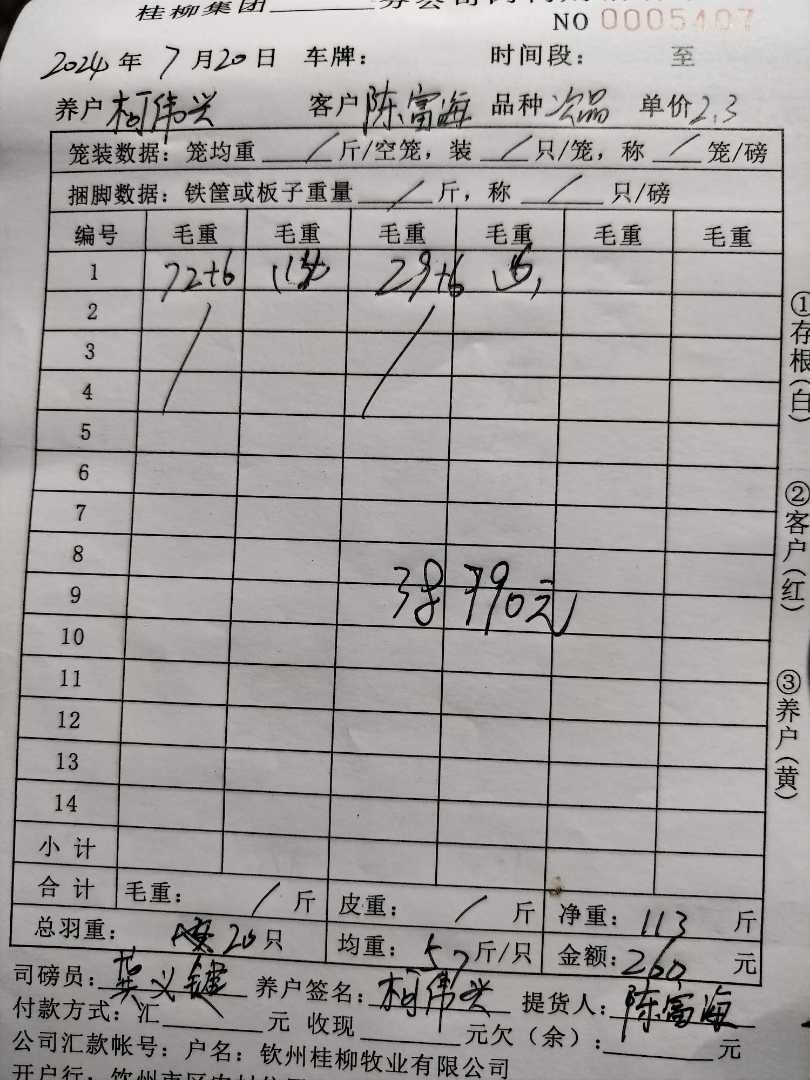 桂柳集团______分公司
NO 0005407
2024年7月20日 车牌： 时间段： 至
养户 柯伟兴 客户 陈富海 品种 次品 单价 2.3
笼装数据：笼均重 / 斤/空笼，装 / 只/笼，称 / 笼/磅
捆脚数据：铁筐或板子重量 / 斤，称 / 只/磅
编号 毛重 毛重 毛重 毛重 毛重 毛重
1 72+6 29+6
2 / /
3
4
5
6
7
8
9 790元
10
11
12
13
14
小计
合计 毛重： / 斤 皮重： / 斤 净重：113 斤
总羽重： 20只 均重：5.7斤/只 金额：260 元
司磅员： 养户签名：柯伟兴 提货人：陈富海
付款方式：汇______元 收现______元欠（余）：______元
公司汇款帐号：户名：钦州桂柳牧业有限公司
开户行：钦州市区农村信用
①存根（白）
②客户（红）
③养户（黄）